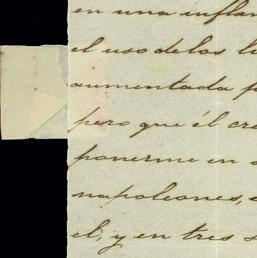 en una infla
el uso de los
aumentada
pero que él cre
ponerme en
napoleones,
el, y en tres